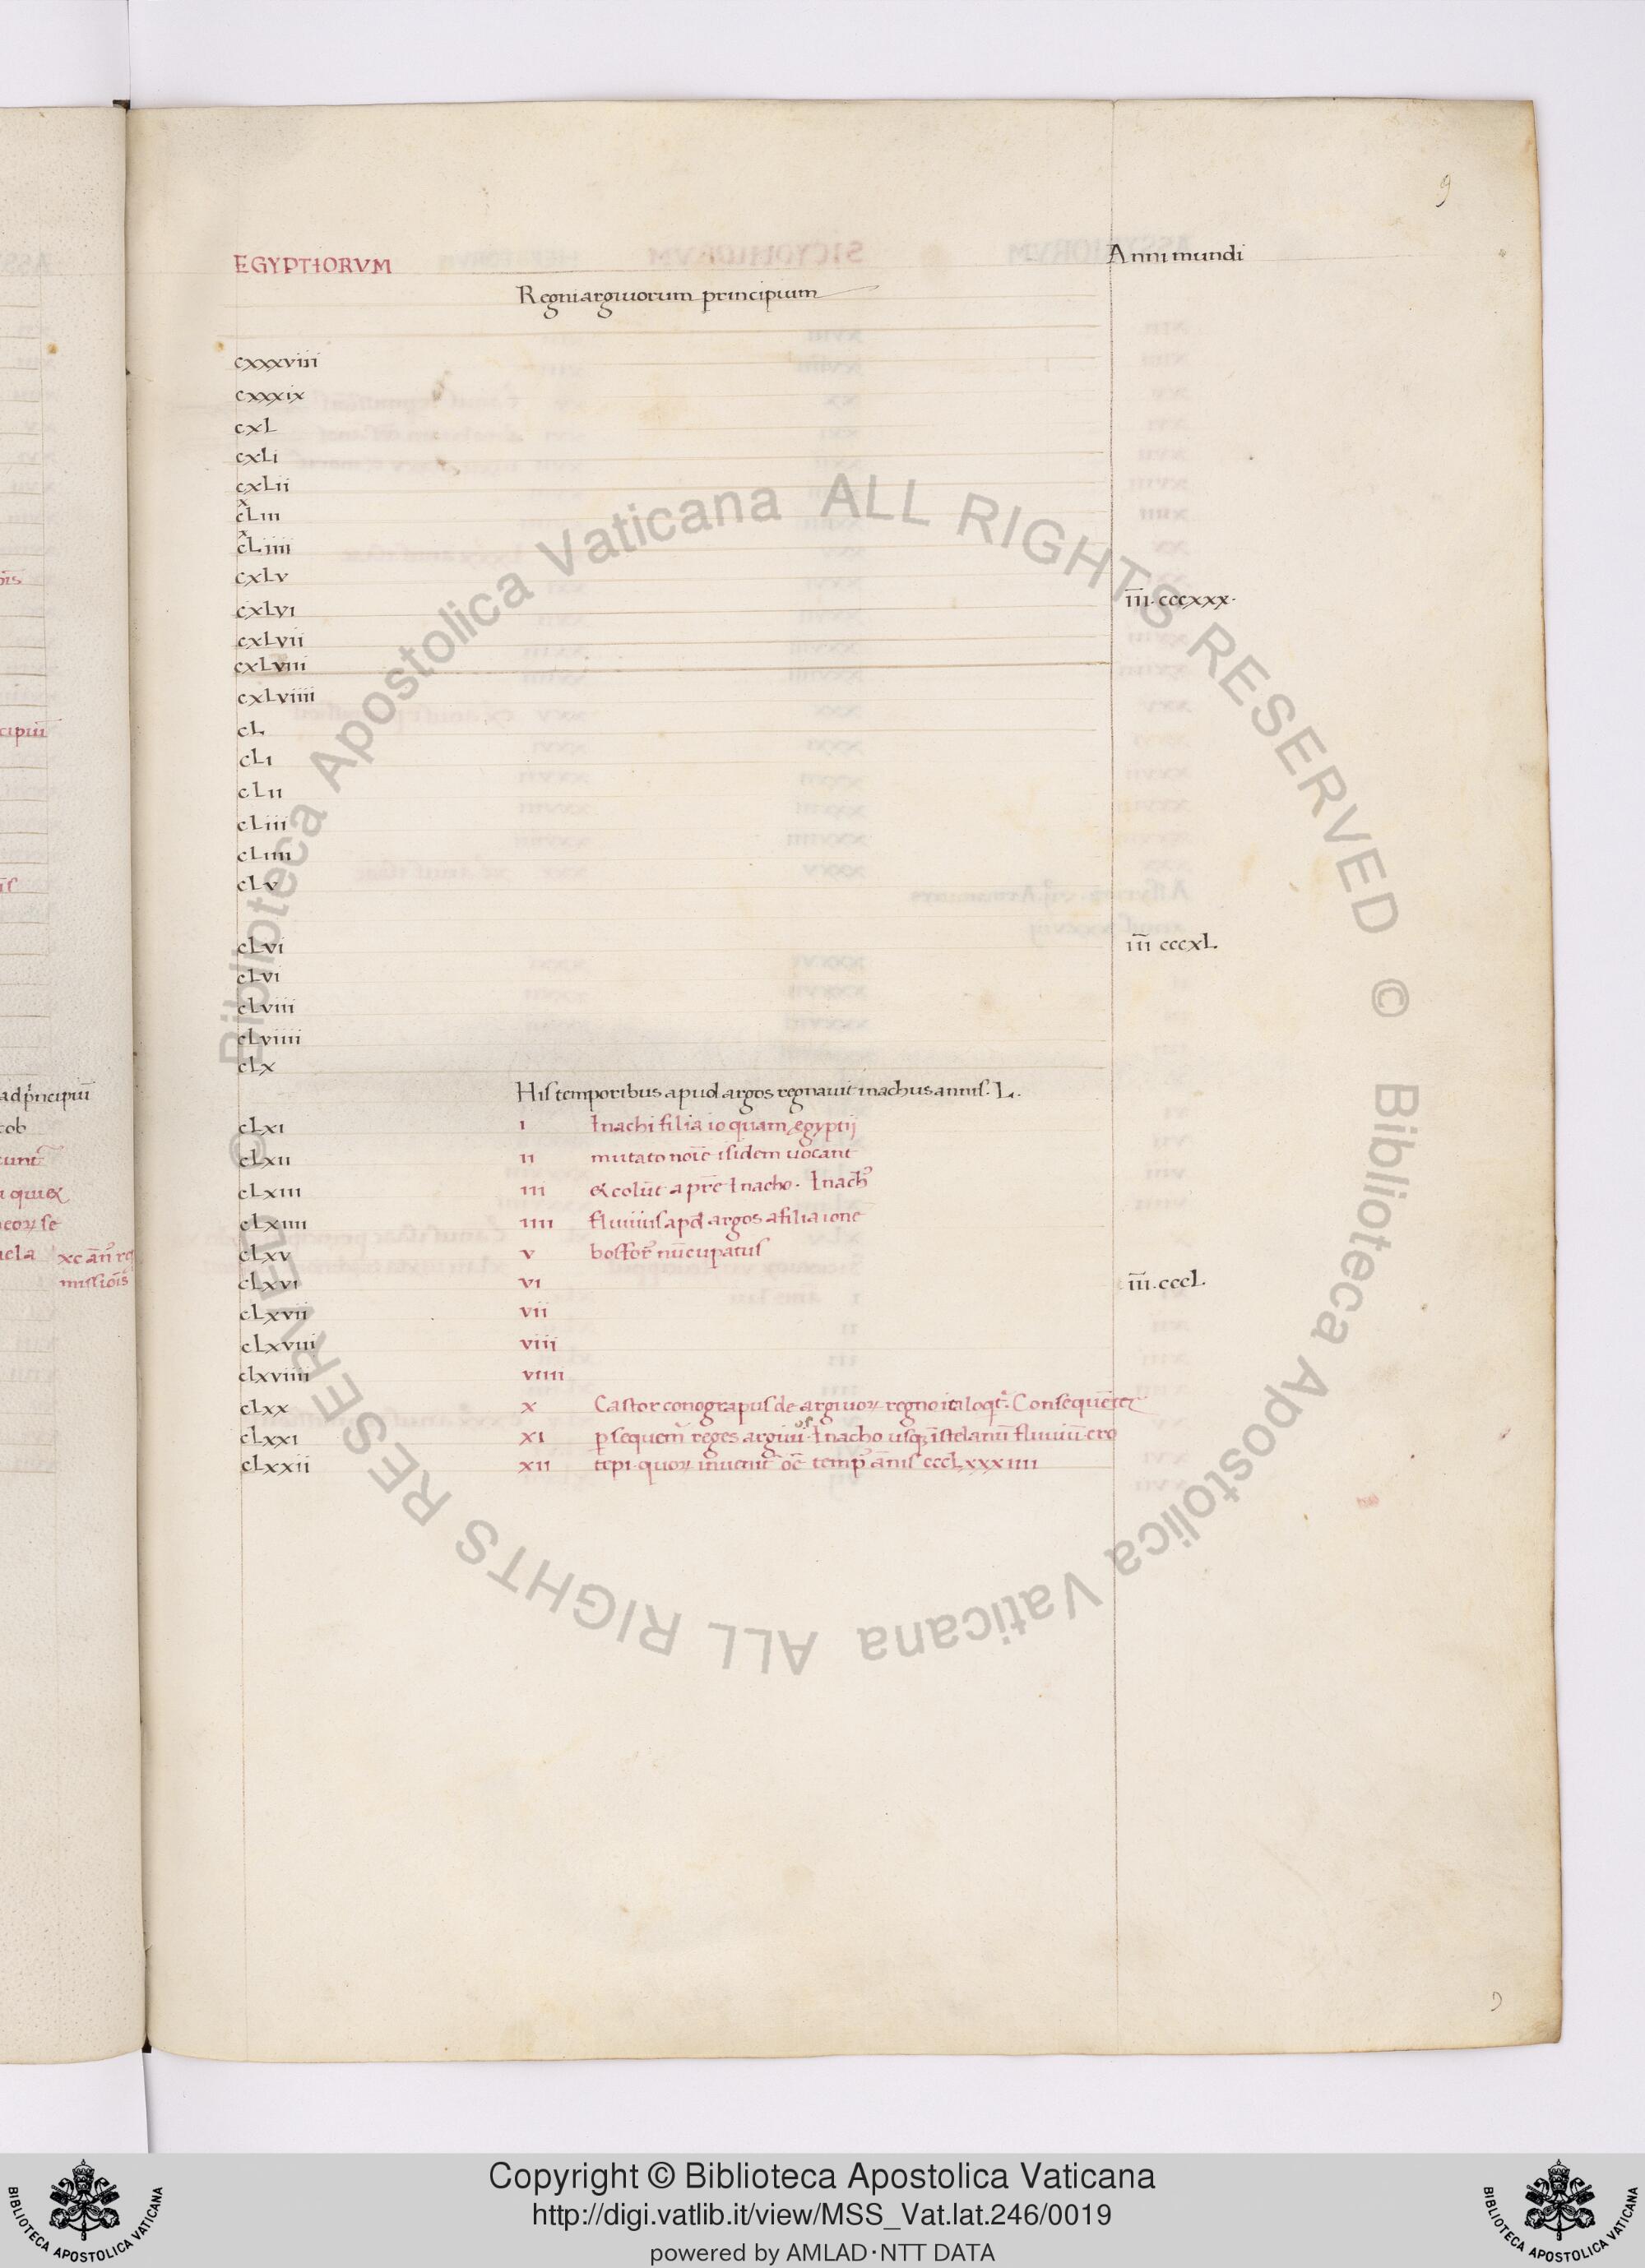 9
EGYPTIORVM Anni mundi
Regni argiuorum principium
cxxxviii
cxxxix
cxL
cxLi
cxLii
cLiii
x
cLiiii
x
cxLv
cxLvi iii̅.cccxxx.
cxLvii
cxLviii
cxLviiii
cL
cLi
cLii
cLiii
cLiiii
cLv
cLvi iii̅ cccxL
cLvi
cLviii
cLviiii
cLx
Hiſ temporibus apud argos regnauit inachus anniſ. L.
cLxi i Inachi filia io quam egyptij
cLxii ii mutato noı̅e iſidem uocant
cLxiii iii & colūt a pr̄e Inacho. Inachꝰ
cLxiiii iiii fluuiuſ apd̄ argos a filia ione
cLxv v boſforꝰ nūcupatuſ
cLxvi vi iii̅.cccL.
cLxvii vii
cLxviii viii
cLxviiii viiii
cLxx x Caſtor conograpuſ de argiuoꝝ regno ita loqt᷑. Conſequēter
cLxxi xi ꝑſequem᷑ reges argiuū Inacho uſqꝫ ı̅ſtelanū fluuiū cro
oſ
cLxxii xii tepi. quoꝝ inuenit᷑ oē tempꝰ ānıſ cccLxxxiiii
ıſ
cipiū
iſ
ad pͥncipiū
cob
cunt
a qui ex
eoꝝ ſe
uela xc ān̄ rep
miſſiōıs
© Biblioteca Apostolica Vaticana ALL RIGHTS RESERVED © Biblioteca Apostolica Vaticana ALL RIGHTS RESERVED
BIBLIOTECA APOSTOLICA VATICANA
Copyright © Biblioteca Apostolica Vaticana
http://digi.vatlib.it/view/MSS_Vat.lat.246/0019
powered by AMLAD·NTT DATA
BIBLIOTECA APOSTOLICA VATICANA